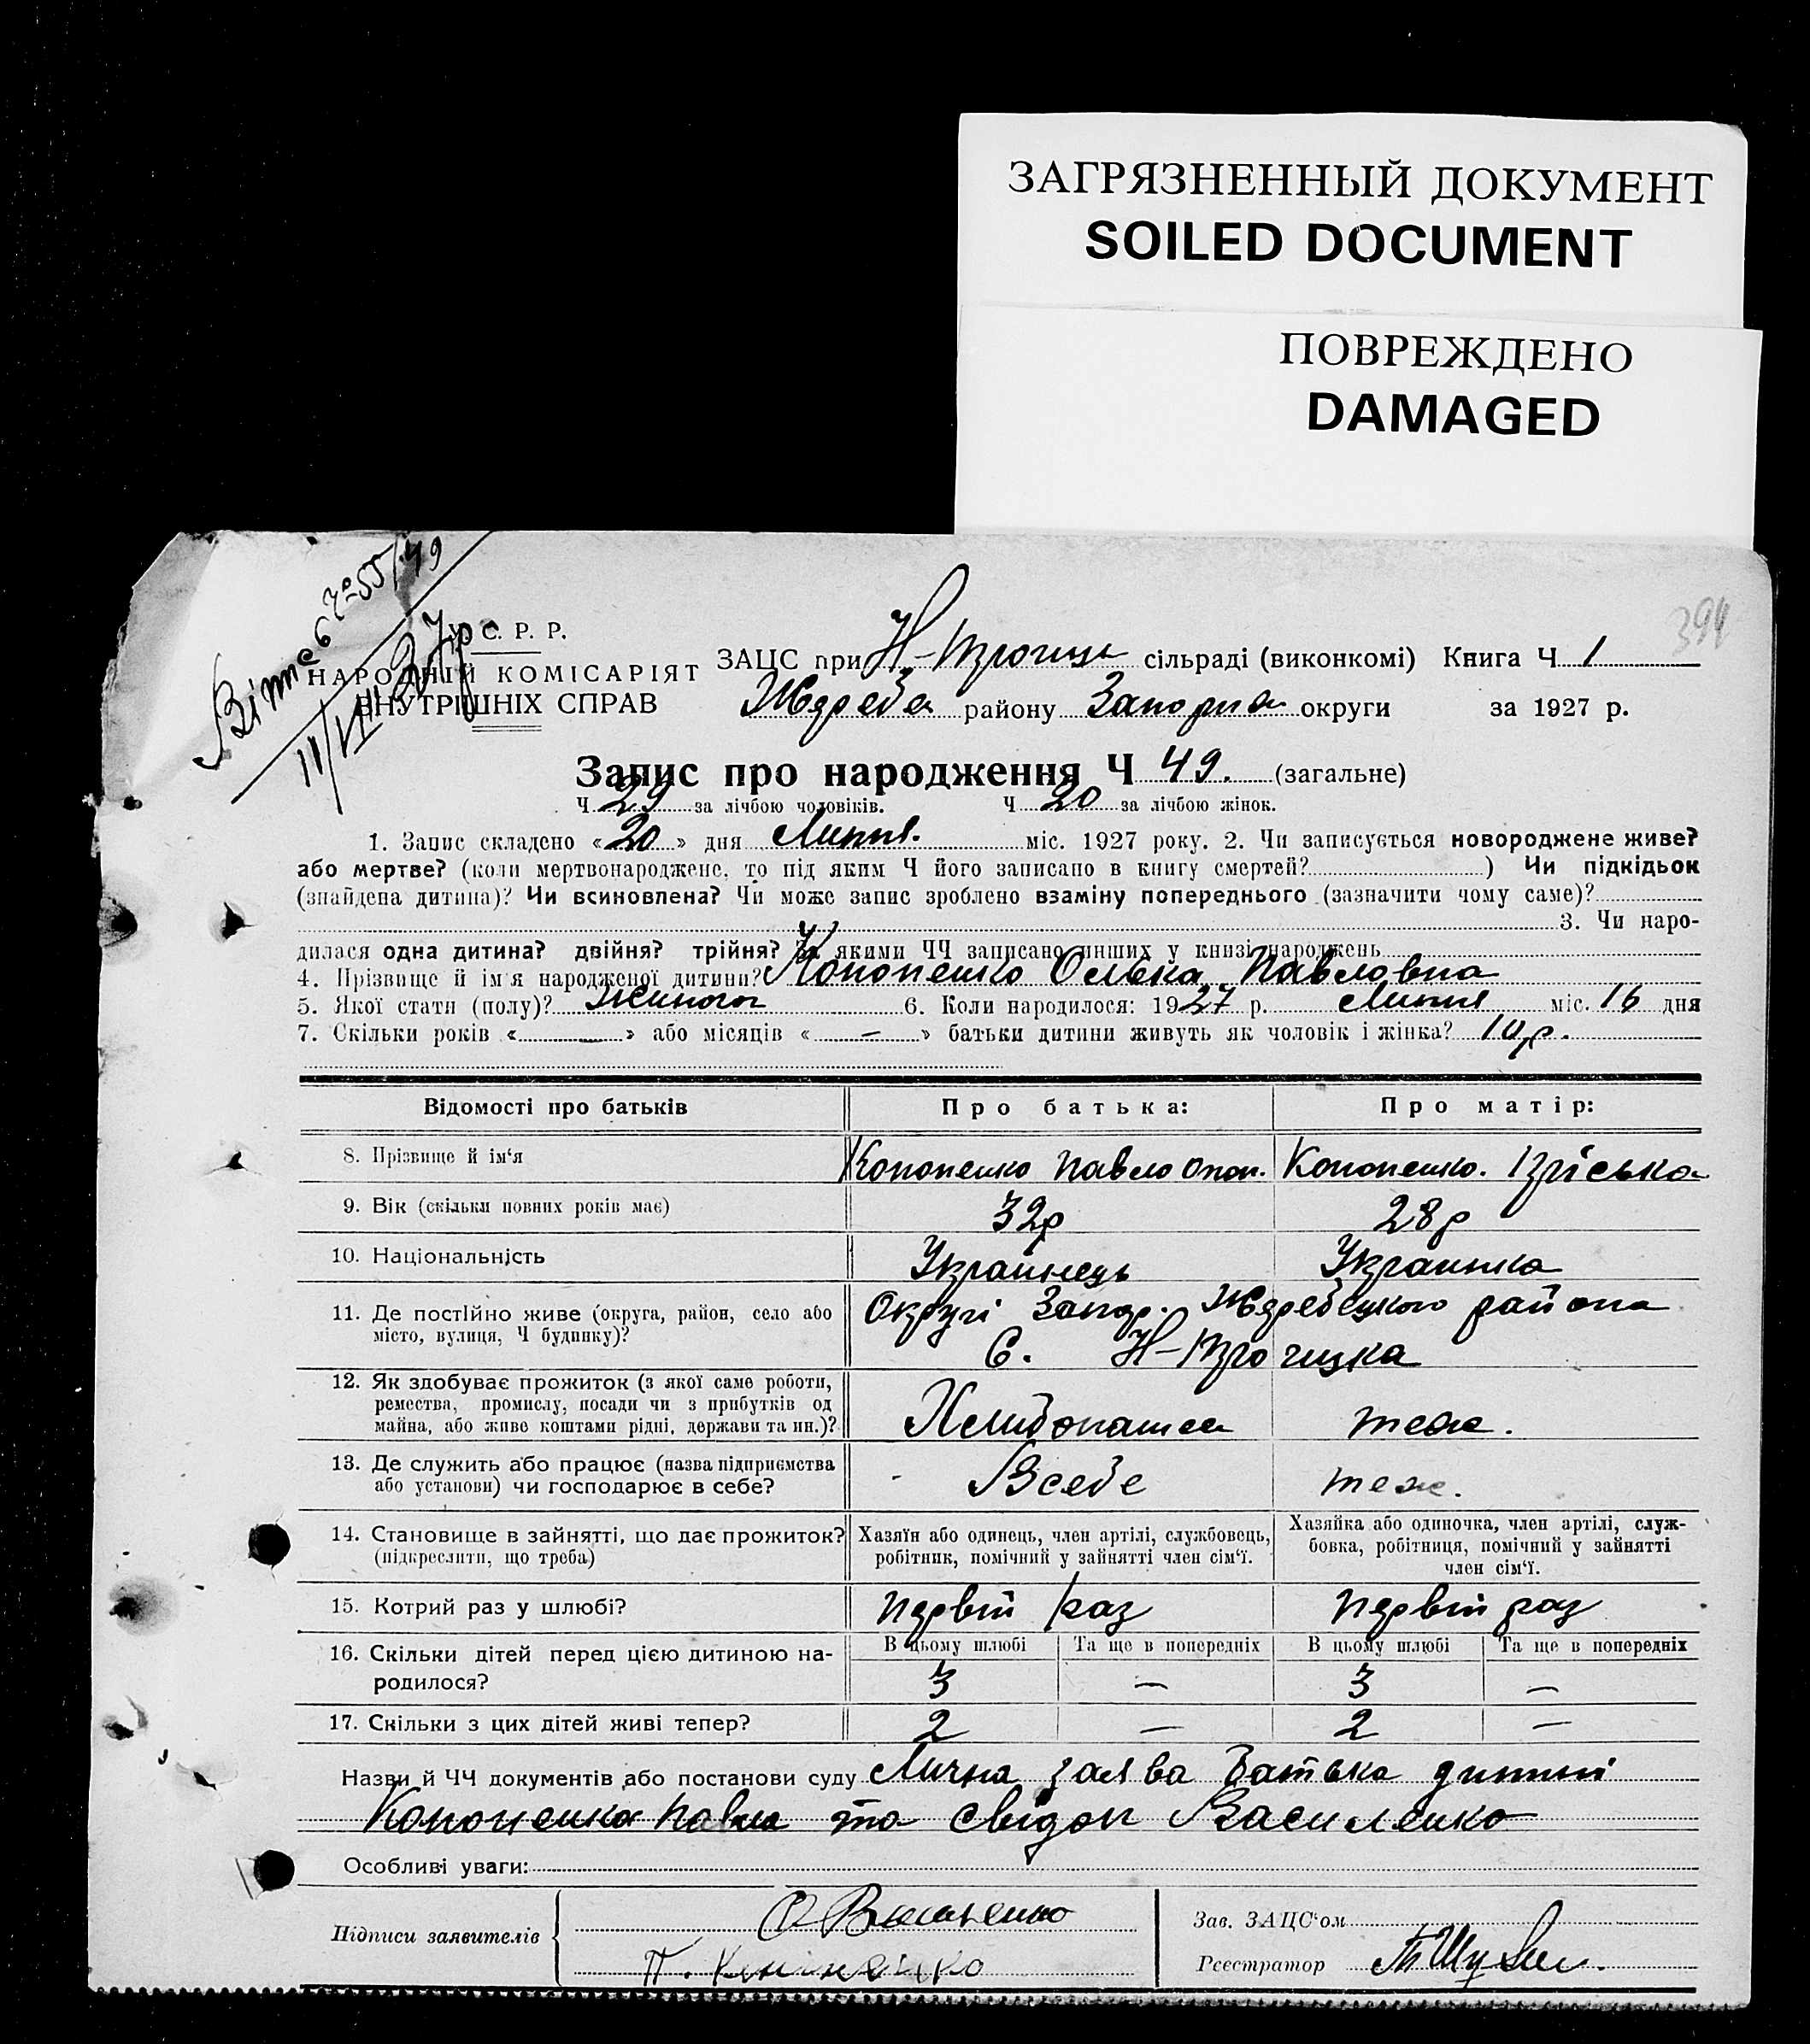 ЗАГРЯЗНЕННЫЙ ДОКУМЕНТ
SOILED DOCUMENT
ПОВРЕЖДЕНО
DAMAGED
394
У. С. Р. Р.
НАРОДНІЙ КОМІСАРІЯТ
ВНУТРІШНІХ СПРАВ
ЗАЦС при Н-Троицк сільраді (виконкомі) Книга Ч 1
Жереб району Запориж округи за 1927 р.
Запис про народження Ч 49. (загальне)
Ч 29 за лічбою чоловіків. Ч 20 за лічбою жінок.
1. Запис складено «20» дня Липня. міс. 1927 року. 2. Чи записується новороджене живе?
або мертве? (коли мертвонароджене, то під яким Ч його записано в книгу смертей? ) Чи підкідьок
(знайдена дитина)? Чи всиновлена? Чи може запис зроблено взаміну попереднього (зазначити чому саме)?
3. Чи наро-
дилася одна дитина? двійня? трійня? За якими ЧЧ записано инших у книзі народжень
4. Прізвище й ім'я народженої дитини? Кононенко Олька Павловна
5. Якої стати (полу)? жиного 6. Коли народилося: 1927 р. Липня міс. 16 дня
7. Скільки років « — » або місяців « — » батьки дитини живуть як чоловік і жінка? 10 р.
Відомості про батьків Про батька: Про матір:
8. Прізвище й ім'я Кононенко Павло Кононенко.
9. Вік (скільки повних років має) 32р 28р
10. Національність Українець Украинка
11. Де постійно живе (округа, район, село або місто, вулиця, Ч будинку)? Округі Запор. Жеребецкого района
С. Н-Троицка
12. Як здобуває прожиток (з якої саме роботи, ремества, промислу, посади чи з прибутків од майна, або живе коштами рідні, держави та ин.)? Хлибопашец теж.
13. Де служить або працює (назва підприємства або установи) чи господарює в себе? Всебе теж.
14. Становище в зайнятті, що дає прожиток? (підкреслити, що треба) Хазяїн або одинець, член артілі, службовець, робітник, помічний у зайнятті член сім'ї. Хазяйка або одиночка, член артілі, служ-бовка, робітниця, помічний у зайнятті член сім'ї.
15. Котрий раз у шлюбі? первій раз первій раз
В цьому шлюбі Та ще в попередніх В цьому шлюбі Та ще в попередніх
16. Скільки дітей перед цією дитиною на-родилося? 3 — 3 —
17. Скільки з цих дітей живі тепер? 2 — 2 —
Назви й ЧЧ документів або постанови суду Лична заява батька дитині
Кононенка Павла та свідок Василенко
Особливі уваги:
Підписи заявителів О Василенко
П. Кононенко
Зав. ЗАЦС'ом
Реєстратор